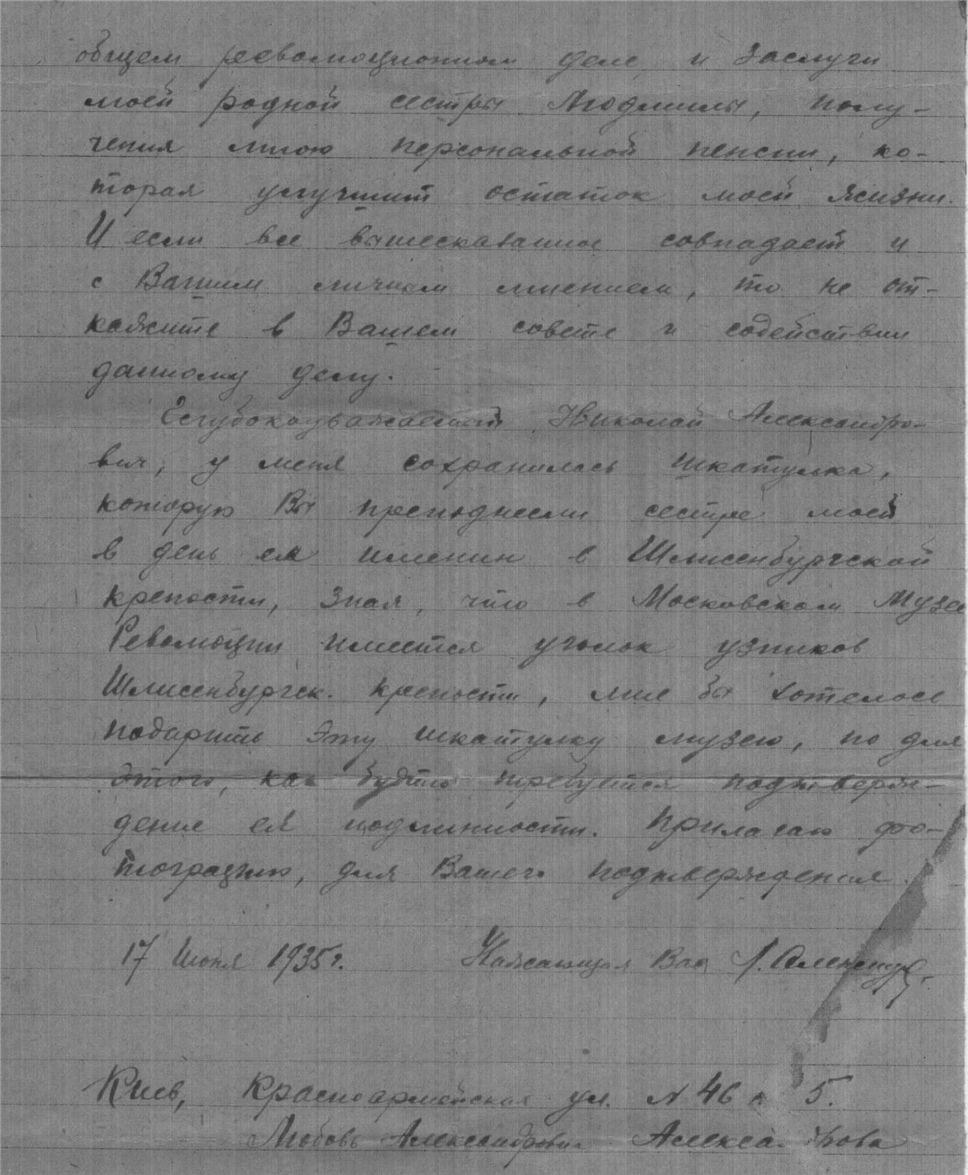 общем революционном деле и заслуги
моей родной сестры Людмилы, полу-
чения мною персональной пенсии, ко-
торая улучшит остаток моей жизни.
И если все вышесказанное совпадает и
с Вашим личным мнением, то не от-
кажите в Вашем совете и содействии
данному делу.
Глубокоуважаемый Николай Александро-
вич, у меня сохранилась шкатулка,
которую Вы преподнесли сестре моей
в день ея именин в Шлисенбургской
крепости, зная, что в Московском Музее
Революции имеется уголок узников
Шлисенбургск. крепости, мне бы хотелось
подарить эту шкатулку музею, но для
этого, как будто требуется подтверж-
дение ея подлинности. Прилагаю фо-
тографию, для Вашего подтверждения.
17 Июня 1935г. Вас Л.
Киев, Красноармейская ул. N 46 5.
Любовь Александровна Александрова